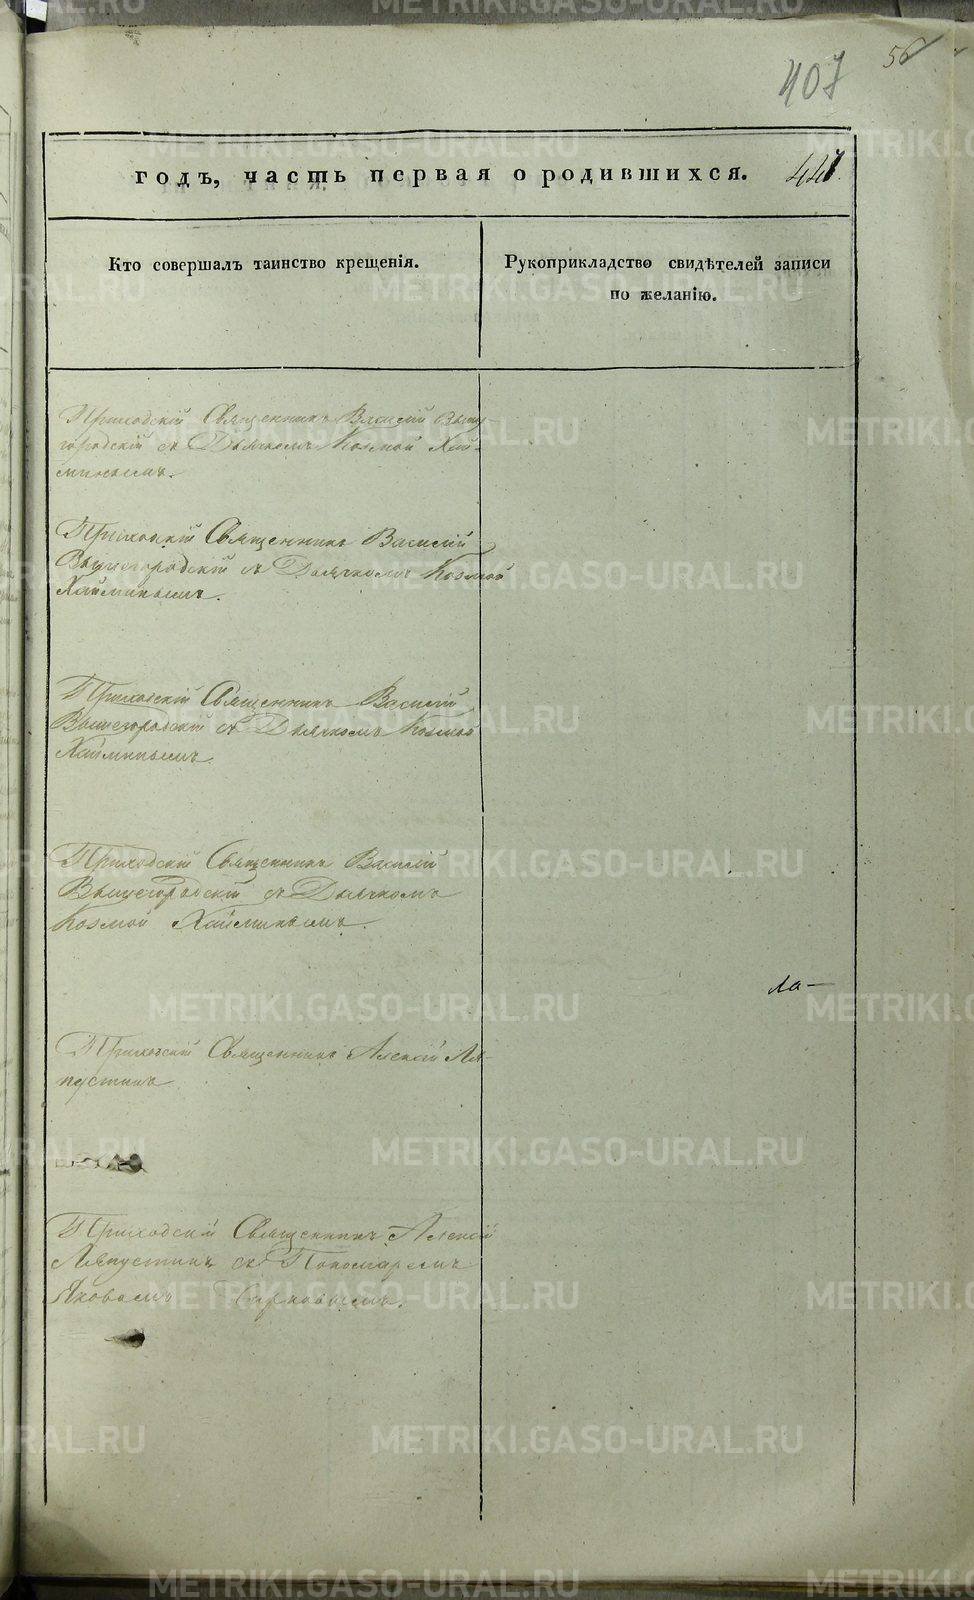 56
407
годъ, часть первая о родившихся. 447.
Кто совершалъ таинство крещенія.
Рукоприкладство свидѣтелей записи
по желанію.
Приходскій Священникъ Василій Выше-
городскій съ Дьячкомъ Козмой Хай-
минымъ.
Приходскій Священникъ Василій
Вышегородскій съ Дьячкомъ Козмой
Хайминымъ.
Приходскій Священникъ Василій
Вышегородскій съ Дьячкомъ Козмой
Хайминымъ.
Приходскій Священникъ Василій
Вышегородскій съ Дьячкомъ
Козмой Хайминымъ.
ла-
Приходскій Священникъ Алексій Ля-
пустинъ
Приходскій Священникъ Алексій
Ляпустинъ съ Пономаремъ
Яковомъ
METRIKI.GASO-URAL.RU